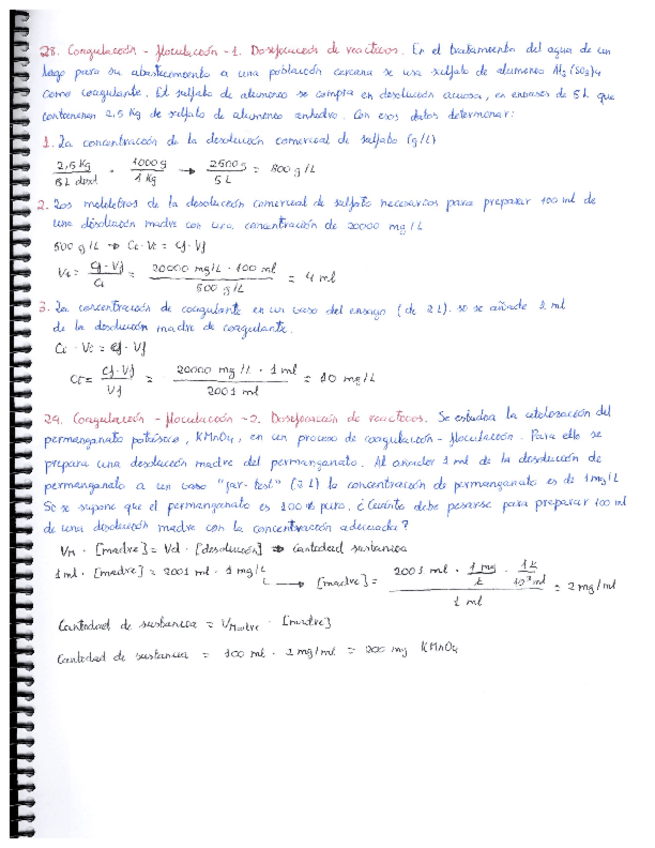 28. Coagulación - floculación - 1. Dosificación de reactivos. En el tratamiento del agua de un
lago para su abastecimiento a una población cercana se usa sulfato de aluminio Al2(SO3)4
como coagulante. El sulfato de aluminio se compra en disolución acuosa, en envases de 5L que
contienen 2,5 Kg de sulfato de aluminio anhidro. Con esos datos determinar:
1. La concentración de la disolución comercial de sulfato (g/L)
2,5 Kg / 5L disol · 1000 g / 1 Kg → 2500 g / 5L = 500 g/L
2. Los mililitros de la disolución comercial de sulfato necesarios para preparar 100 ml de
una disolución madre con una concentración de 20000 mg/L
500 g/L → Ci · Vi = Cf · Vf
Vi = Cf · Vf / Ci = 20000 mg/L · 100 ml / 500 g/L = 4 ml
3. La concentración de coagulante en un vaso del ensayo (de 2L). si se añade 1 ml
de la disolución madre de coagulante.
Ci · Vi = Cf · Vf
Cf = Ci · Vi / Vf = 20000 mg/L · 1 ml / 2001 ml = 10 mg/L
29. Coagulación - floculación - 2. Dosificación de reactivos. Se estudia la utilización del
permanganato potásico, KMnO4, en un proceso de coagulación - floculación. Para ello se
prepara una disolución madre del permanganato. Al añadir 1 ml de la disolución de
permanganato a un vaso "jar-test" (2L) la concentración de permanganato es de 1 mg/L
Si se supone que el permanganato es 100% puro. ¿Cuánto debe pesarse para preparar 100 ml
de una disolución madre con la concentración adecuada?
Vm · [madre] = Vd · [disolución] → Cantidad sustancia
1 ml · [madre] = 2001 ml · 1 mg/L → [madre] = 2001 ml · 1 mg / L · 1L / 10³ ml / 1 ml = 2 mg/ml
Cantidad de sustancia = VMadre · [madre]
Cantidad de sustancia = 100 ml · 2 mg/ml = 200 mg KMnO4